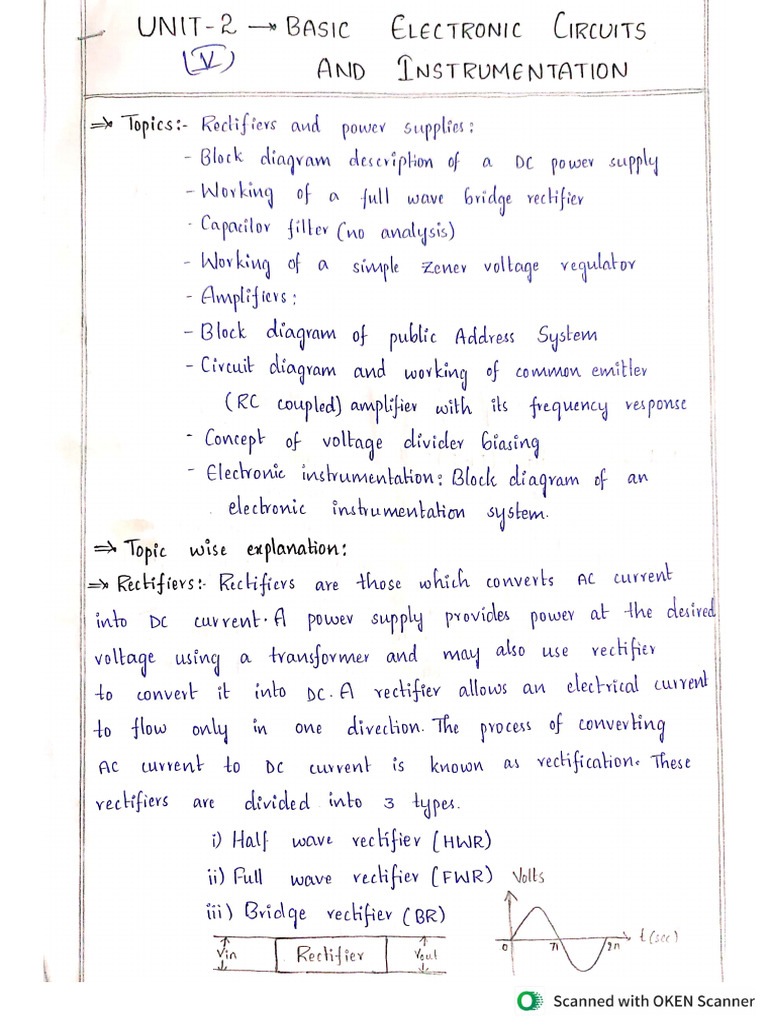 UNIT-2 → BASIC ELECTRONIC CIRCUITS
(V) AND INSTRUMENTATION
⇒ Topics:- Rectifiers and power supplies:
- Block diagram description of a DC power supply
- Working of a full wave bridge rectifier
- Capacitor filter (no analysis)
- Working of a simple Zener voltage regulator
- Amplifiers:
- Block diagram of public Address System
- Circuit diagram and working of common emitter
(RC coupled) amplifier with its frequency response
- Concept of voltage divider biasing
- Electronic instrumentation: Block diagram of an
electronic instrumentation system.
⇒ Topic wise explanation:
⇒ Rectifiers:- Rectifiers are those which converts AC current
into DC current. A power supply provides power at the desired
voltage using a transformer and may also use rectifier
to convert it into DC. A rectifier allows an electrical current
to flow only in one direction. The process of converting
AC current to DC current is known as rectification. These
rectifiers are divided into 3 types.
i) Half wave rectifier (HWR)
ii) Full wave rectifier (FWR)
iii) Bridge rectifier (BR)
Volts
t(sec)
0 π 2π
Vin Rectifier Vout
Scanned with OKEN Scanner